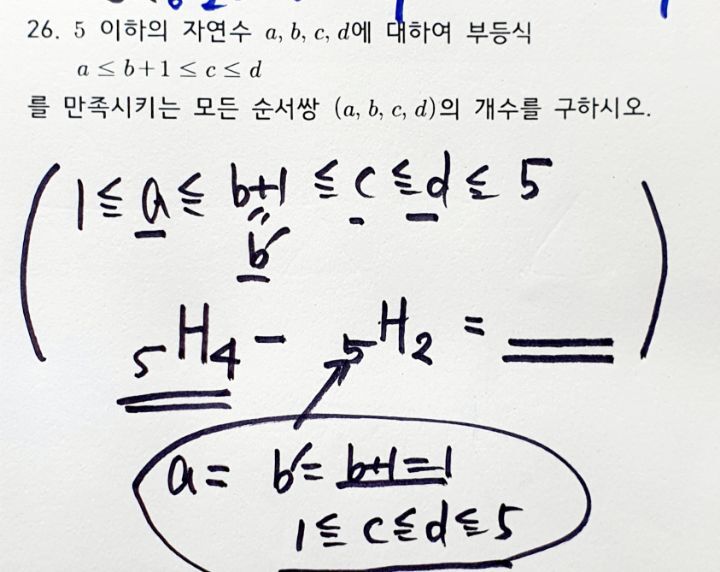 26. 5 이하의 자연수 a, b, c, d에 대하여 부등식
a ≤ b+1 ≤ c ≤ d
를 만족시키는 모든 순서쌍 (a, b, c, d)의 개수를 구하시오.
1 ≦ a ≦ b+1 ≦ c ≦ d ≦ 5
b′
₅H₄ - ₅H₂ =
a = b′ = b+1 = 1
1 ≦ c ≦ d ≦ 5